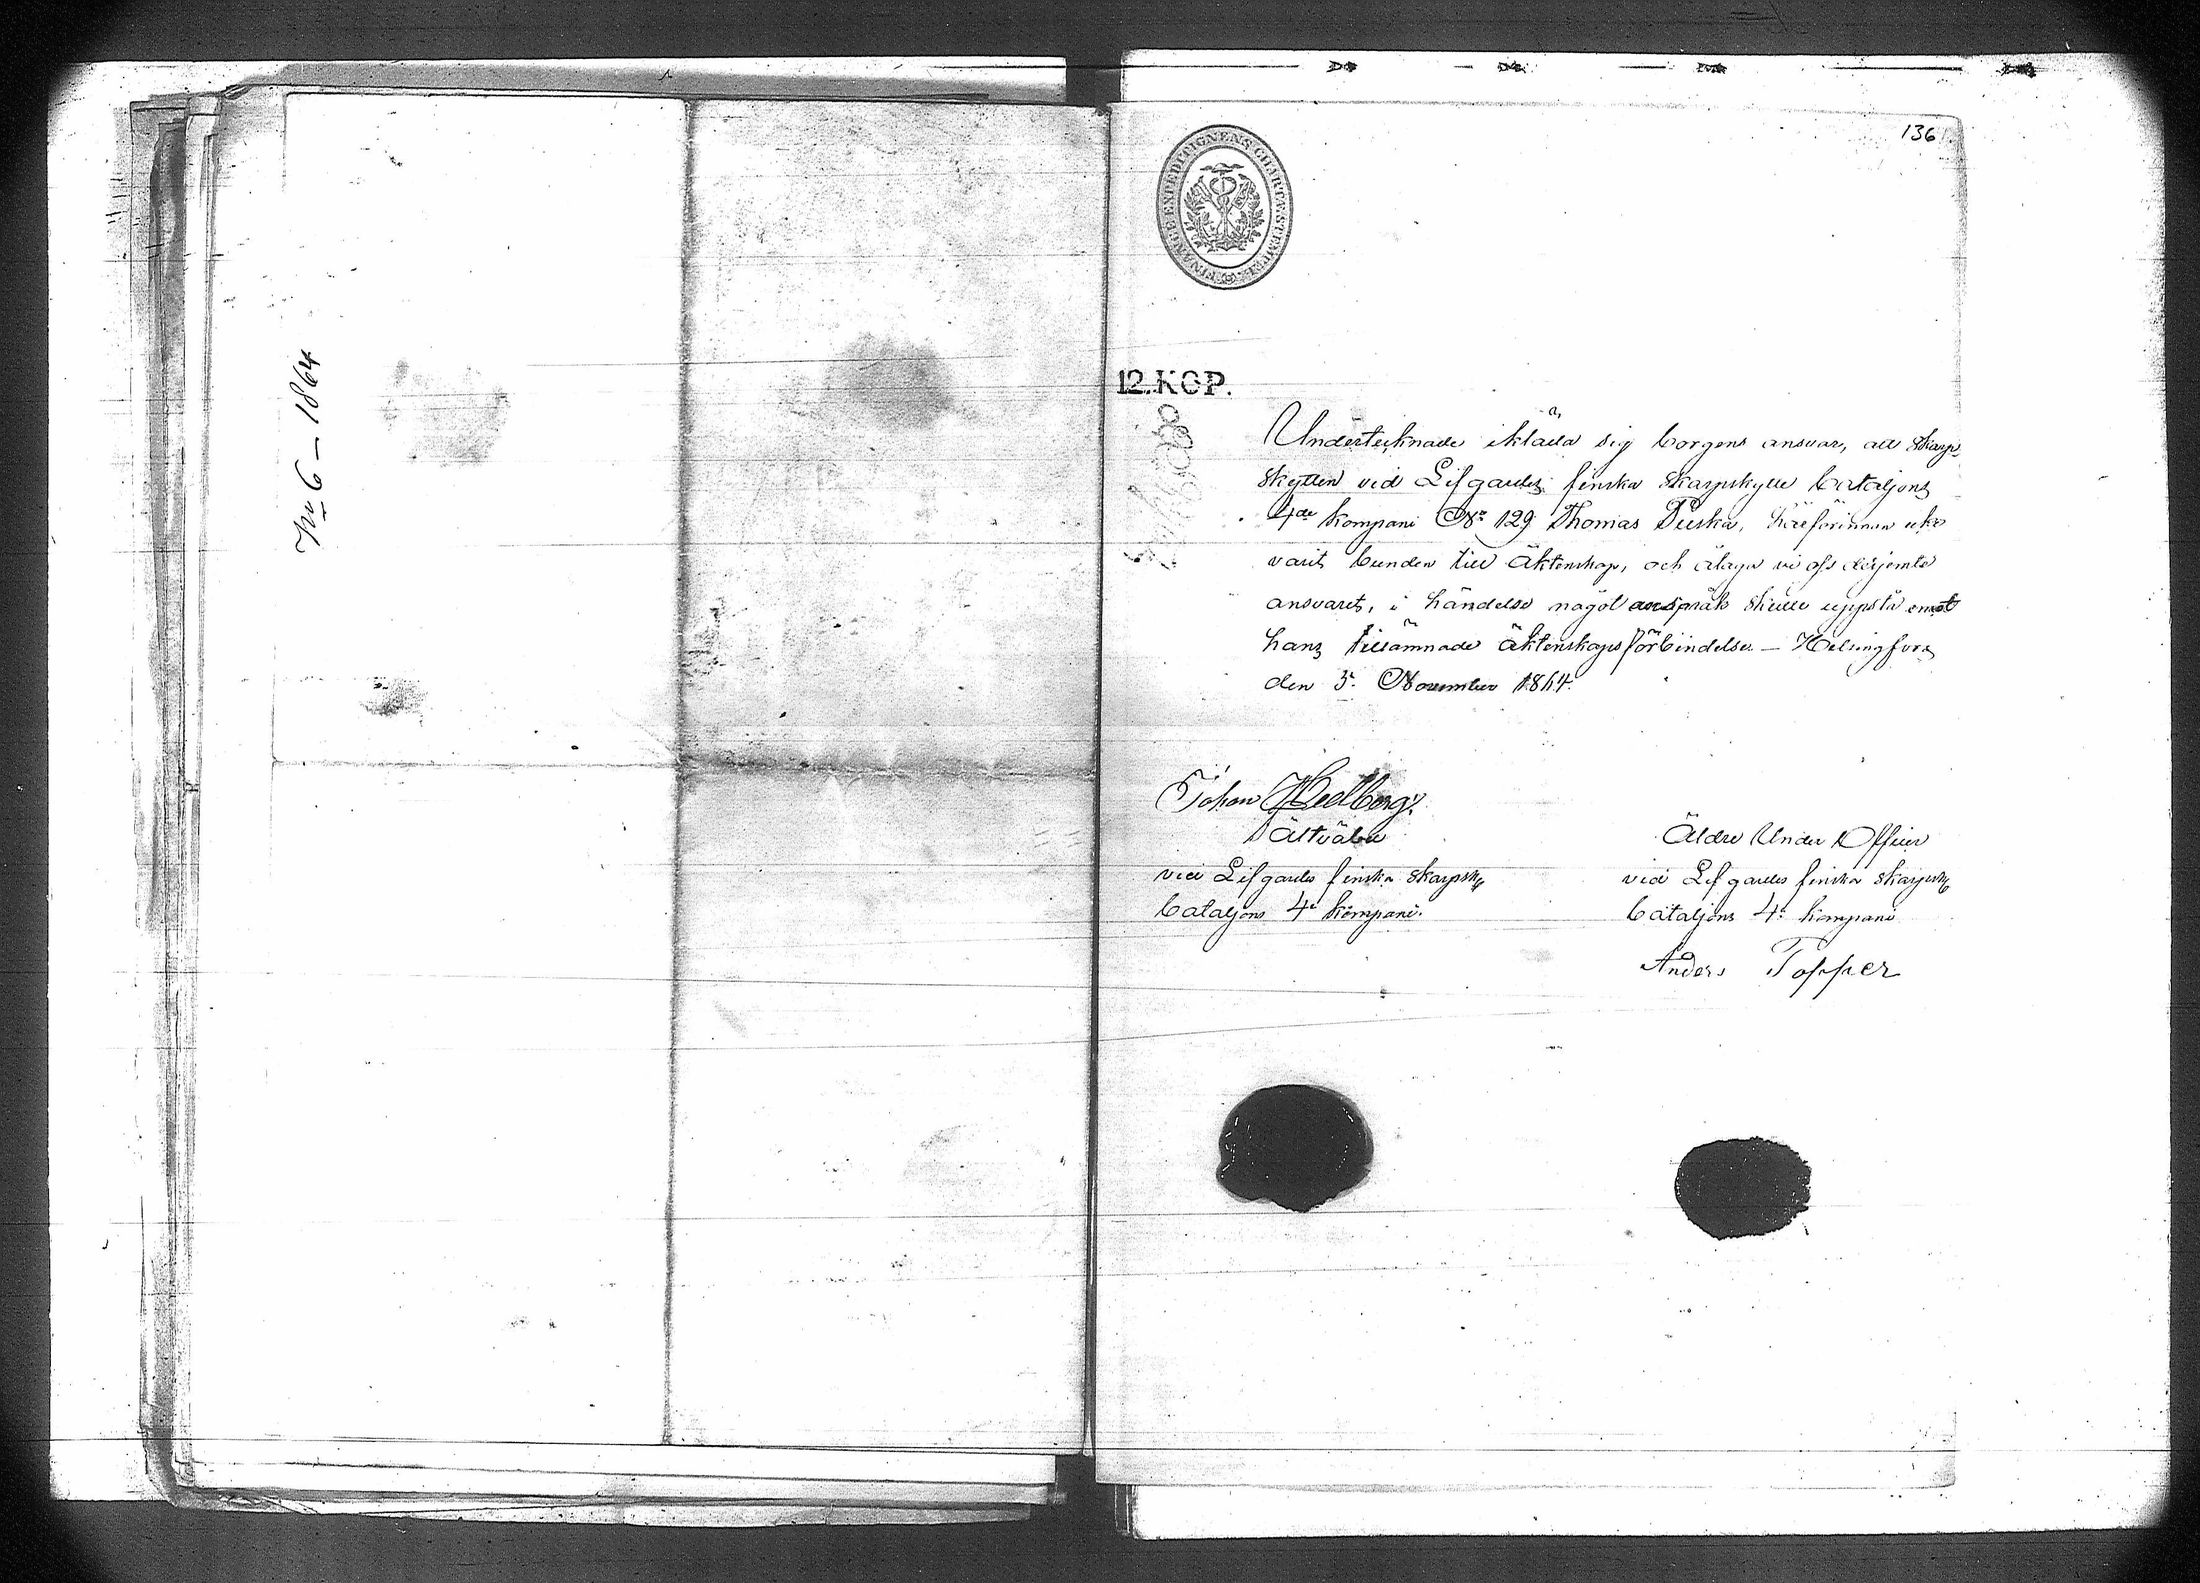 No 6 – 1864
136
FINANCE EXPEDITIONENS CHARTÆ STEMPEL
12.KOP.
Undertecknade ikläda sig borgens ansvar, att skarp-
skytten vid Lifgardes finska skarpskytte bataljons
4de Kompani No 129 Thomas Tuska, härförinnan icke
varit bunden till äktenskap, och åtaga vi oss derjemte
ansvaret, i händelse något anspråk skulle uppstå emot
hans tillämnade äktenskapsförbindelse – Helsingfors
den 5. November 1864.
Johan Hedberg.
Fältväbel
vid Lifgardes finska skarpsk
bataljons 4e kompani.
Äldre Under Officer
vid Lifgardes finska skarpsk
bataljons 4e kompani
Anders Topper